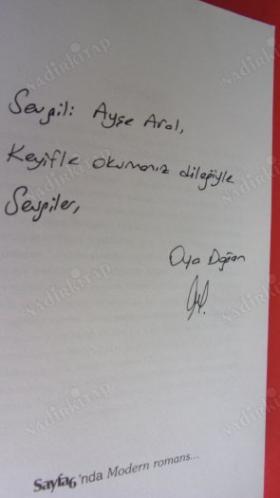 Sevgili Ayşe Aral,
Keyifle okumanız dileğiyle
Sevgiler,
Oya Doğan
Sayfa6'nda Modern romans...